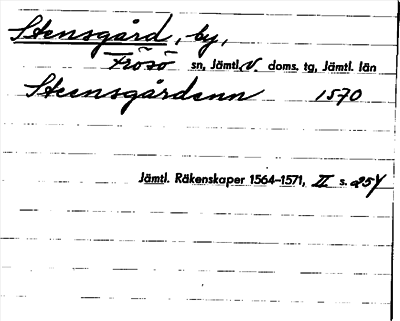 Stensgård, by,
Frösö sn, Jämtl. v. doms. tg, Jämtl. län
Steensgårdenn 1570
Jämtl. Räkenskaper 1564-1571, II s. 254